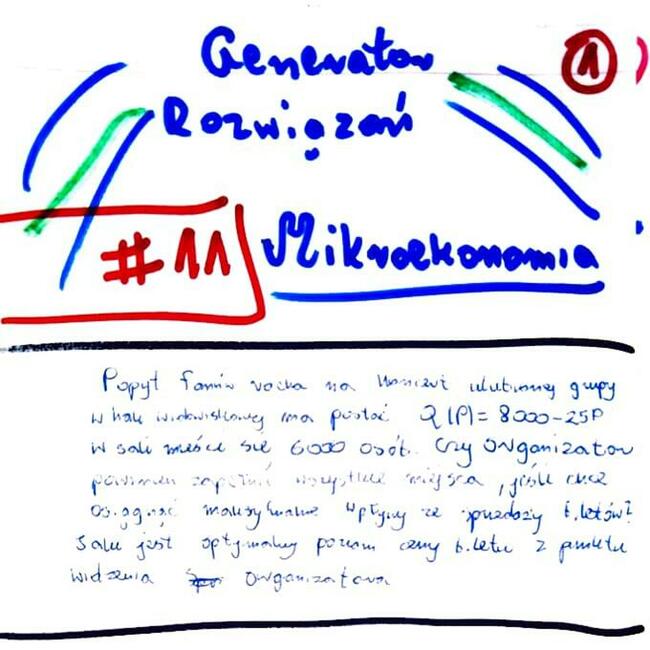 Generator
①
Rozwiązań
#11
Mikroekonomia
Popyt fanów rocka na koncert ulubionej grupy
w hali widowiskowej ma postać Q(P)=8000-25P
w sali mieści się 6000 osób. Czy organizator
powinien zapełnić wszystkie miejsca, jeśli chce
osiągnąć maksymalne wpływy ze sprzedaży biletów?
jest optymalny poziom ceny biletu z punktu
widzenia organizatora